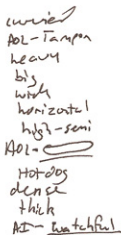 curvier
AOL-Tampon
heavy
big
wide
horizontal
high-semi
AOL-
Hotdog
dense
thick
AI-watchful